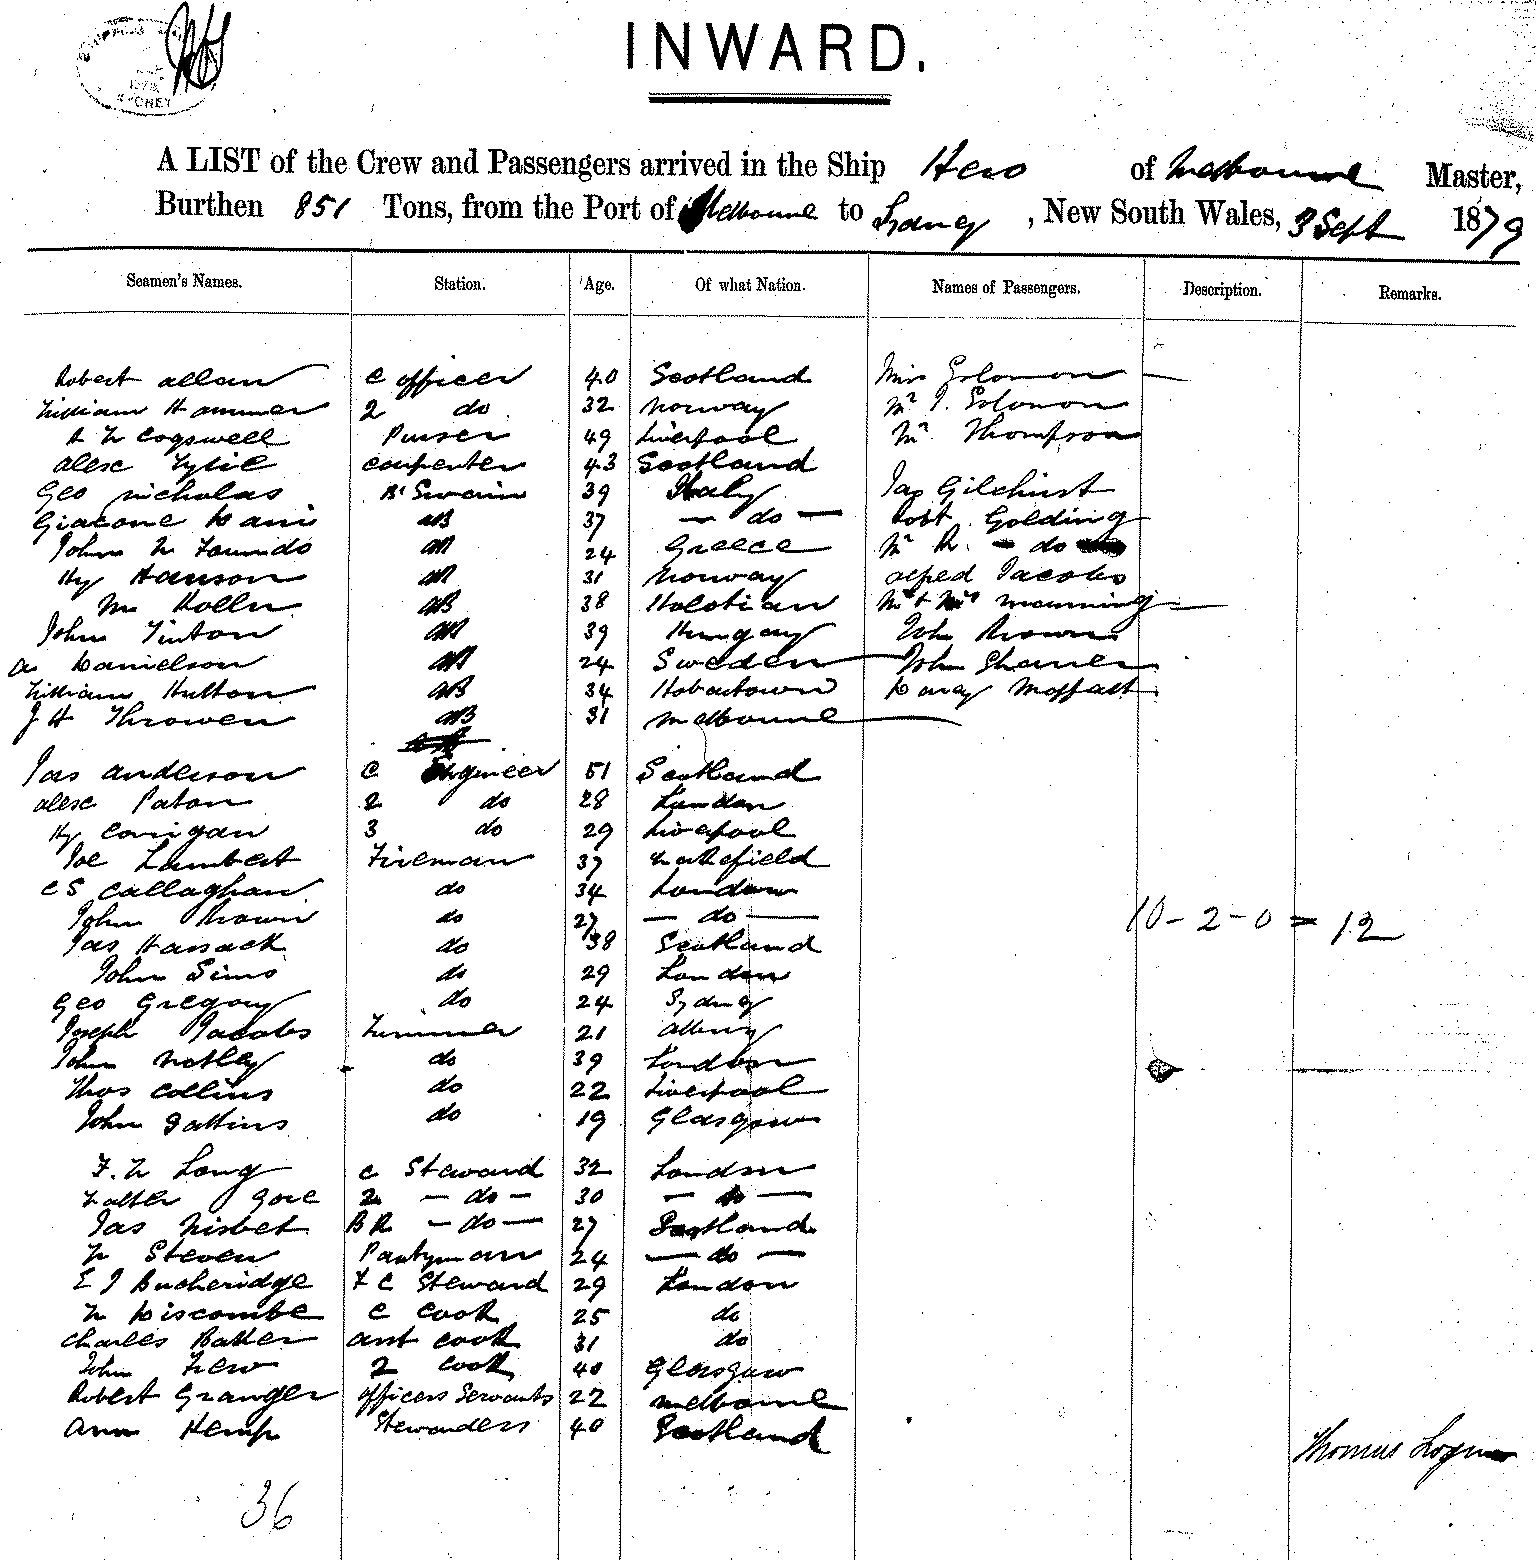 SYDNEY
INWARD.
A LIST of the Crew and Passengers arrived in the Ship Hero of Melbourne Master,
Burthen 851 Tons, from the Port of Melbourne to Sydney, New South Wales, 3 Sept 1879
Seamen's Names. Station. Age. Of what Nation. Names of Passengers. Description. Remarks.
Robert Allan C officer 40 Scotland Miss Solomon
William Hammer 2 do 32 Norway Mr I. Solomon
Cogswell Purser 49 Liverpool Mr Thompson
Alex Lylie carpenter 43 Scotland
Geo Nicholas Bt Swain 39 Italy Jas Gilchrist
Giacone Dani AB 37 - do - Robt Golding
John AB 24 Greece Mr R. - do
Hy Hanson AB 31 Norway Alfred Jacobs
Wm Holln AB 38 Holstian Mr & Mrs Mourning
John Tinton AB 39 Hungary John Brown
A Danielson AB 24 Sweden John
William Hutton AB 34 Hobartown Moffatt
J H Throwen AB 31 Melbourne
Jas Anderson C Engineer 51 Scotland
Alex Paton 2 do 28 London
Hy Corigan 3 do 29 Liverpool
Joe Lambert Fireman 37 Wakefield
C S Callaghan do 34 London
John Brown do 27 - do - 10-2-0 = 12
Jas Hassack do 38 Scotland
John Sims do 29 London
Geo Gregory do 24 Sydney
Joseph Jacobs Trimmer 21 Albury
John Notley do 39 London
Thos Collins do 22 Liverpool
John do 19 Glasgow
F. W Long C Steward 32 London
Walter Gore 2 - do - 30 - do -
Jas Nisbet BR - do - 27 Scotland
W Steven Pantryman 24 - do -
E J Bucheridge F C Steward 29 London
W Discombe C Cook 25 do
Charles Baker asst cook 31 do
John Frew 2 Cook 40 Glasgow
Robert Granger officers Servants 22 Melbourne
Ann Kemp Stewardess 40 Scotland
Thomas Logan
36